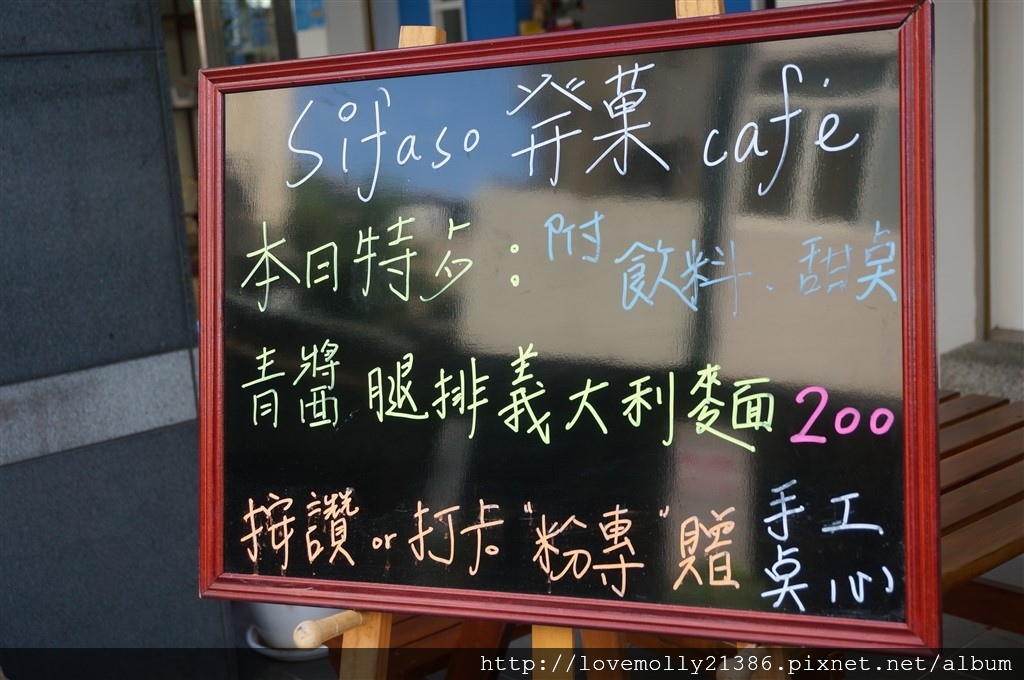 Sifaso 癷菓 café
本日特夕：附飲料、甜点
青醬腿排義大利麥面 200
按讚 or 打卡 "粉專" 贈 手工
点心
http://lovemolly21386.pixnet.net/album